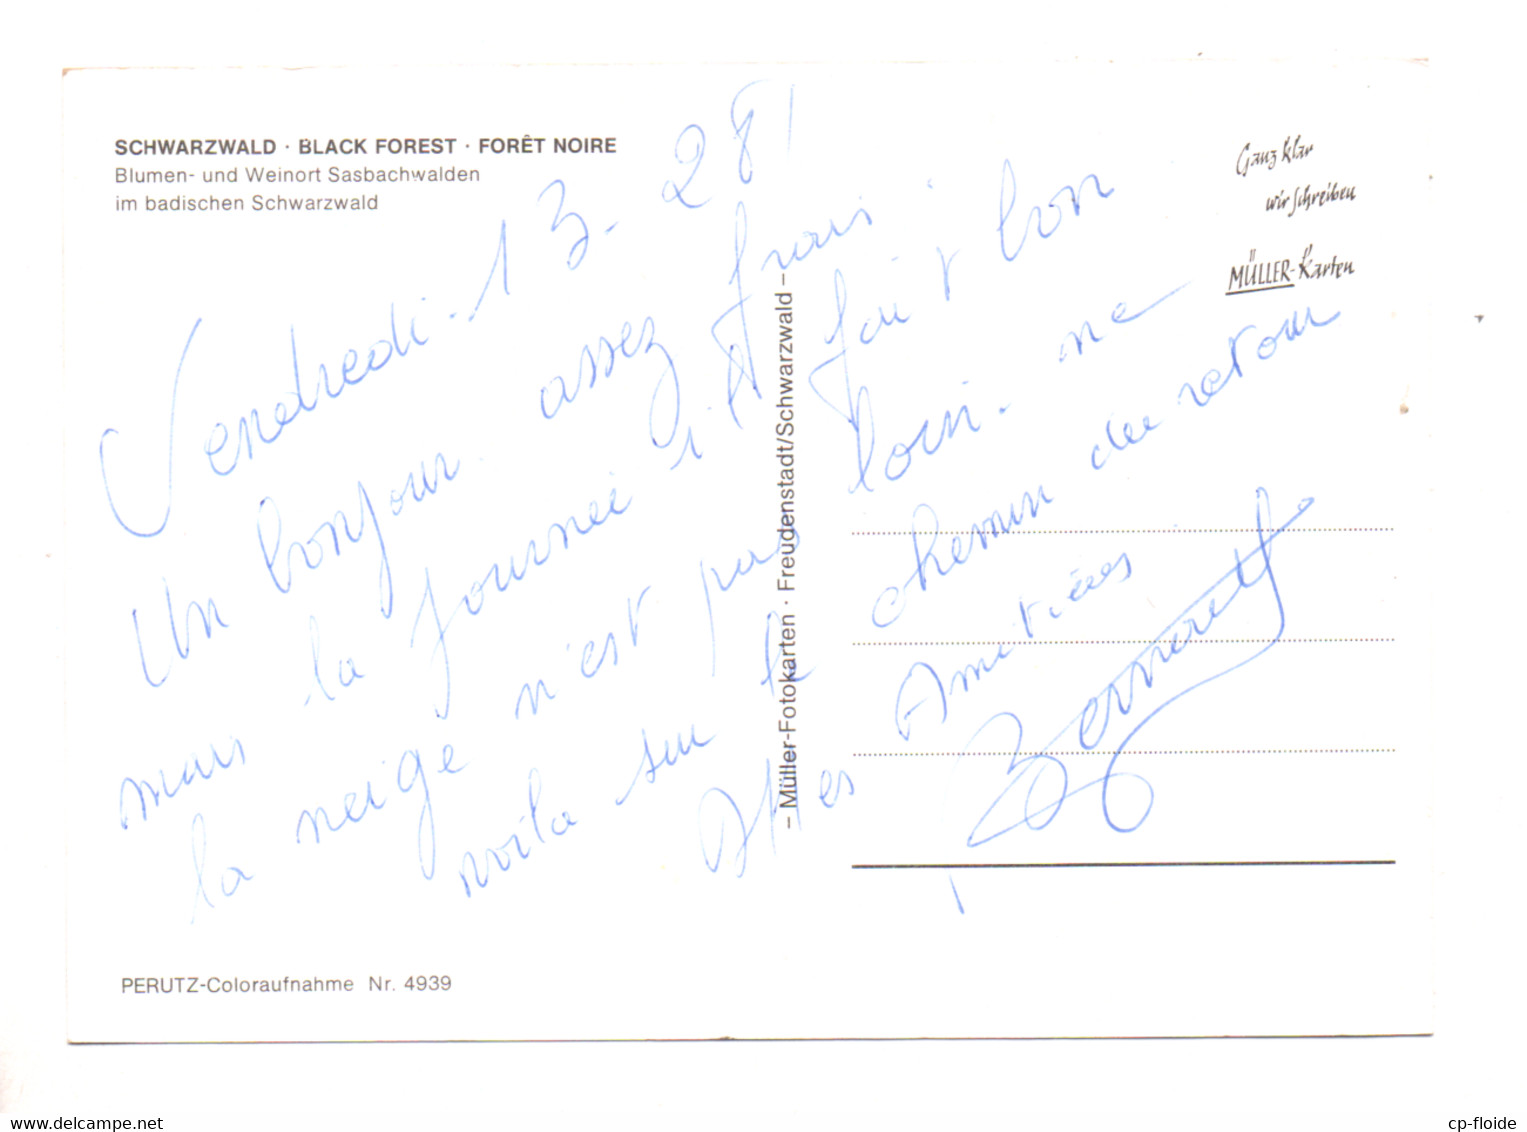 SCHWARZWALD · BLACK FOREST · FORÊT NOIRE
Blumen- und Weinort Sasbachwalden
im badischen Schwarzwald
Ganz klar
wir schreiben
MÜLLER-Karten
Vendredi - 13 - 2 81
Un bonjour assez frais
mais la journée il fait bon
la neige n'est pas loin - me
voila sur le chemin du retour
Amitiées
Bernard
– Müller-Fotokarten · Freudenstadt/Schwarzwald –
PERUTZ-Coloraufnahme Nr. 4939
cp-floide